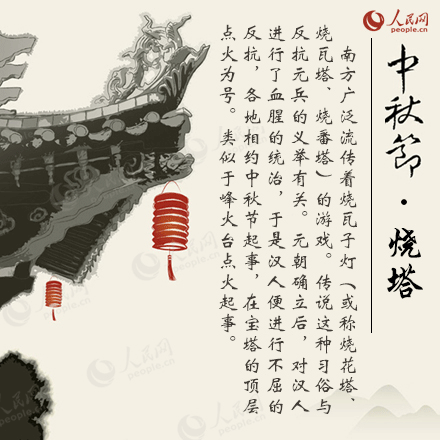 人民网
people.cn
中秋節·烧塔
南方广泛流传着烧瓦子灯（或称烧花塔、
烧瓦塔、烧番塔）的游戏。传说这种习俗与
反抗元兵的义举有关。元朝确立后，对汉人
进行了血腥的统治，于是汉人便进行不屈的
反抗，各地相约中秋节起事，在宝塔的顶层
点火为号。类似于峰火台点火起事。